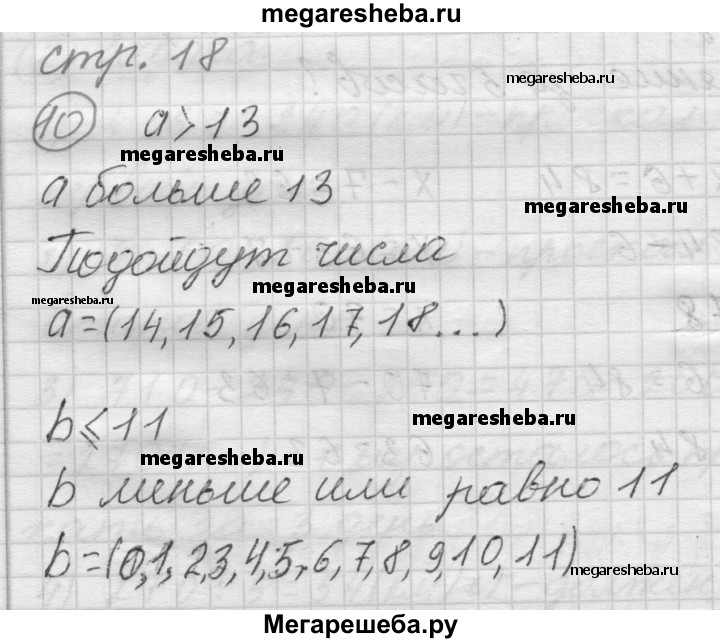 megaresheba.ru
стр. 18
megaresheba.ru
10 a > 13
megaresheba.ru
a больше 13
megaresheba.ru
Подойдут числа
megaresheba.ru
megaresheba.ru
a=(14, 15, 16, 17, 18...)
b ⩽ 11
megaresheba.ru
megaresheba.ru
b меньше или равно 11
b=(0,1,2,3,4,5,6,7,8,9,10,11)
megaresheba.ru
Мегарешеба.ру